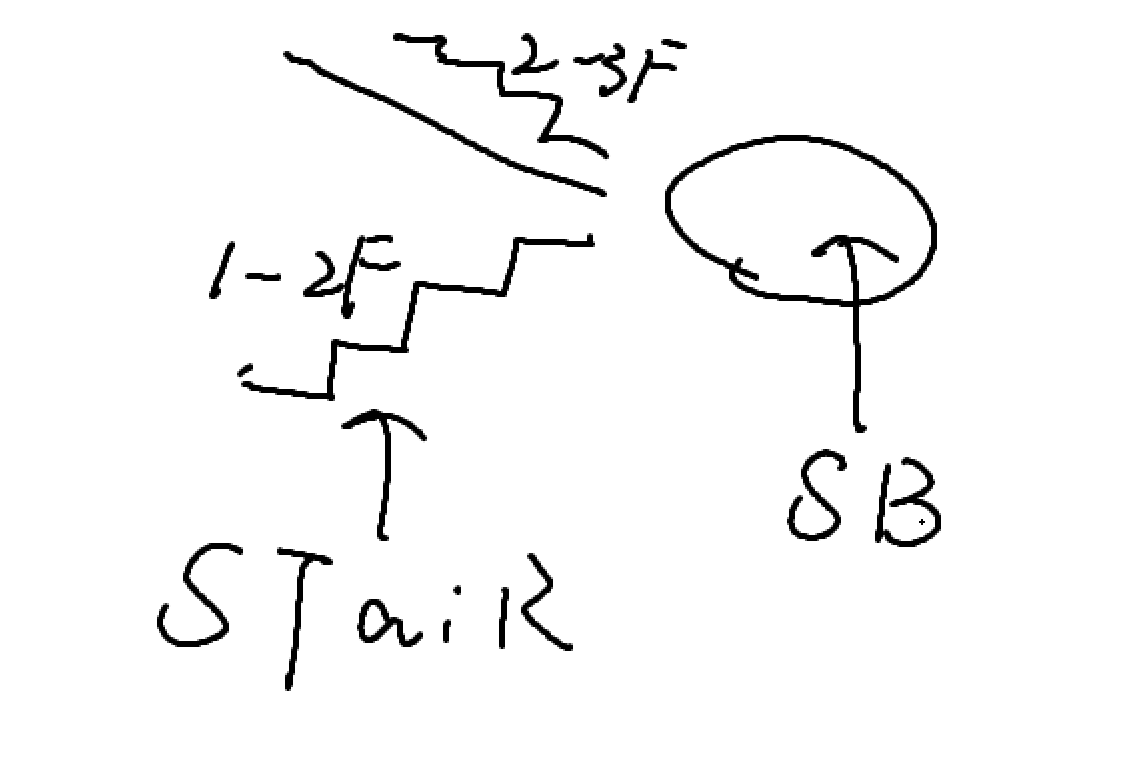 2-3F
1-2F
SB
STaiR